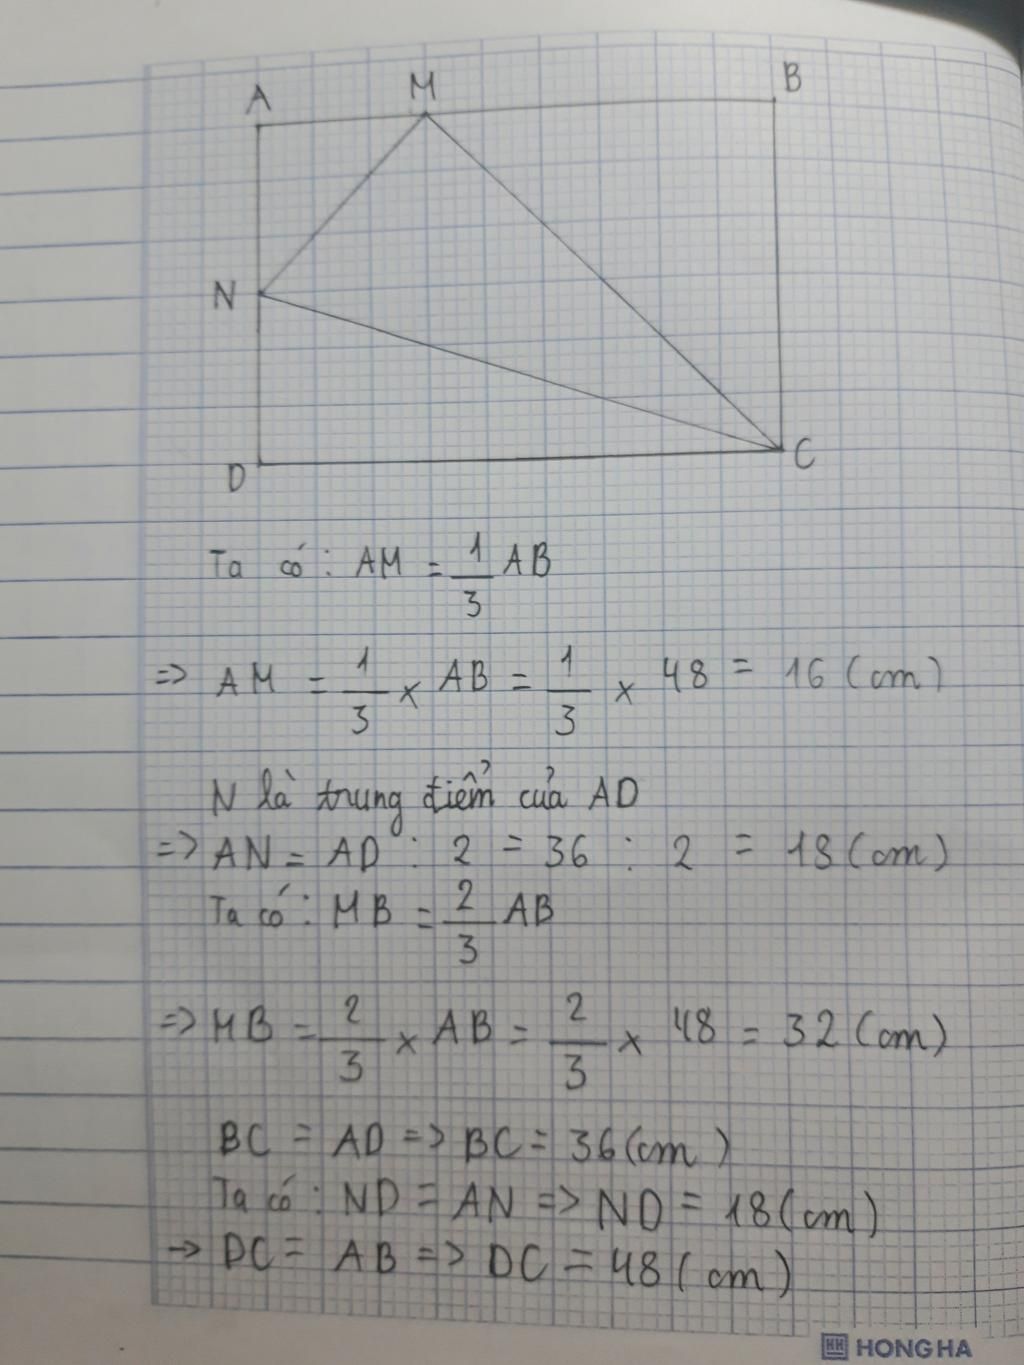 A M B
N
D C
Ta có : AM = 1/3 AB
=> AM = 1/3 x AB = 1/3 x 48 = 16 (cm)
N là trung điểm của AD
=> AN = AD : 2 = 36 : 2 = 18 (cm)
Ta có : MB = 2/3 AB
=> MB = 2/3 x AB = 2/3 x 48 = 32 (cm)
BC = AD => BC = 36 (cm)
Ta có : ND = AN => ND = 18 (cm)
-> DC = AB => DC = 48 (cm)
HH HONG HA